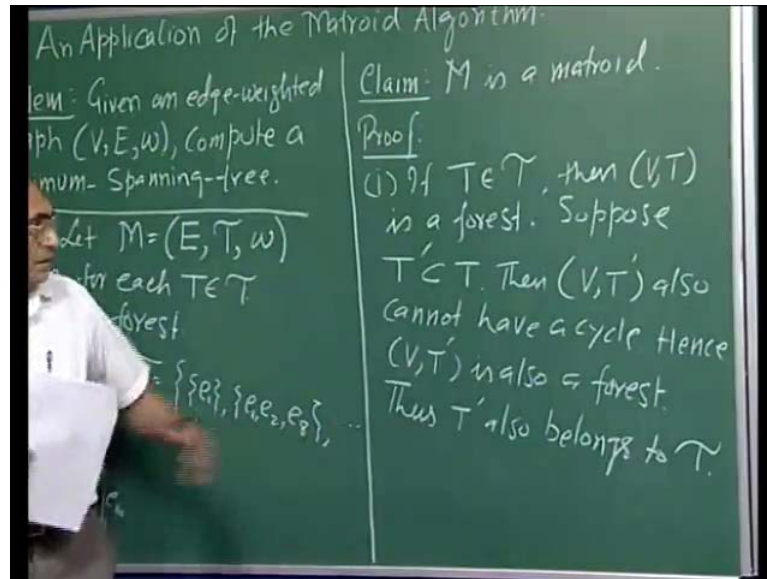 An Application of the Matroid Algorithm.
lem: Given an edge-weighted
ph (V, E, w), Compute a
mum- Spanning--tree.
Let M = (E, 𝒯, w)
for each T ∈ 𝒯
forest
= {{e₁}, {e₁, e₂, e₃}, ...
Claim: M is a matroid.
Proof.
(i) If T ∈ 𝒯, then (V,T)
is a forest. Suppose
T' ⊂ T. Then (V,T') also
cannot have a cycle Hence
(V,T') is also a forest.
Thus T' also belongs to 𝒯.